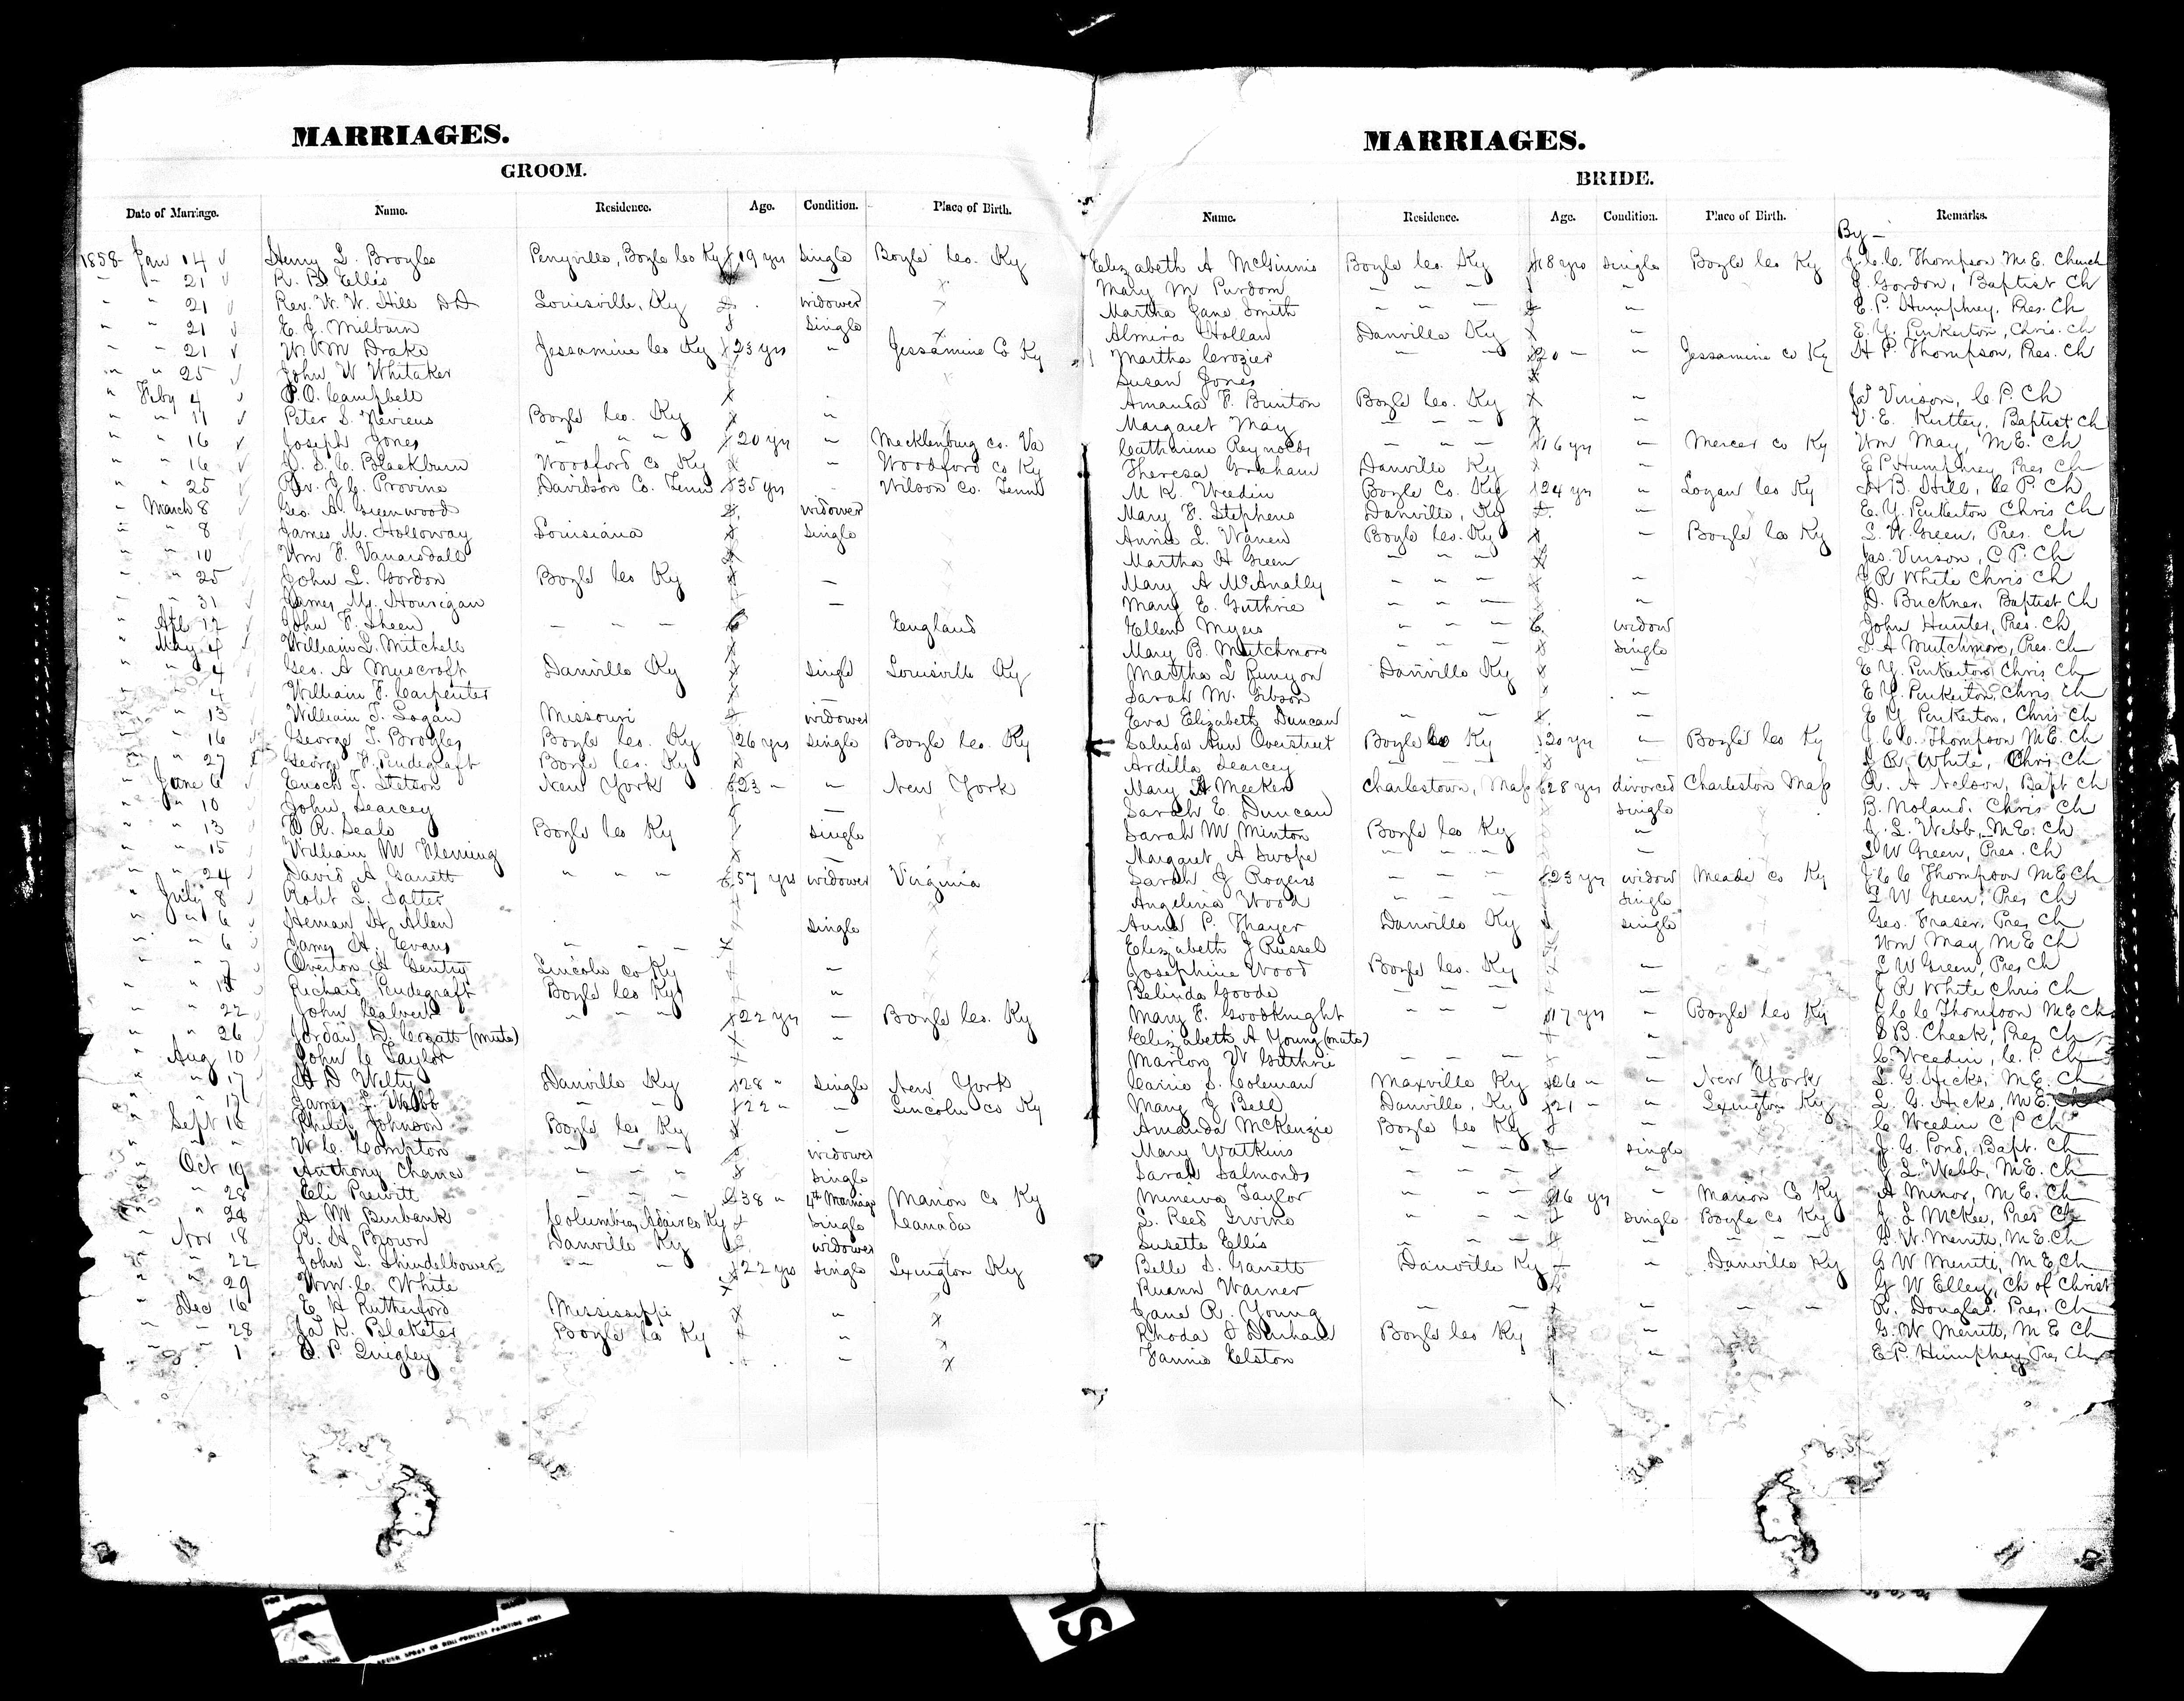 MARRIAGES. MARRIAGES.
GROOM. BRIDE.
Date of Marriage. Name. Residence. Age. Condition. Place of Birth. Name. Residence. Age. Condition. Place of Birth. Remarks.
By —
1858 Jan 14 Henry L. Broyles Perryville, Boyle Co Ky 19 yrs single Boyle Co. Ky Elizabeth A McGinnis Boyle Co. Ky 18 yrs single Boyle Co Ky J.C.C. Thompson M.E. Church
" " 21 R. B. Ellis — Mary M Purdom — — — — J. Gordon, Baptist Ch
" " 21 Rev. W. W. Hill DD Louisville, Ky widower Martha Jane Smith — — — — E. P. Humphrey, Pres. Ch
" " 21 E. J. Milburn single Almira Hollan Danville Ky — E. Y. Pinkerton, Chris. Ch
" " 21 W. M Drake Jessamine Co Ky 23 yrs " Jessamine Co Ky Martha Crozier — — 20 — — Jessamine Co Ky H P. Thompson, Pres. Ch
" " 25 John W Whitaker Susan Jones
" Feby 4 P. O. Campbell Amanda F. Bunton Boyle Co. Ky — Jas Vinson, C. P. Ch
" " 11 Peter S. Nevius Boyle Co. Ky — Margaret May — — — — V. E. Kirtley, Baptist Ch
" " 16 Joseph Jones " " " 20 yrs — Mecklenburg Co. Va Catharine Reynolds — — — 16 yrs — Mercer Co Ky Wm May, M.E. Ch
" " 16 Blackburn Woodford Co Ky — Woodford Co Ky Theresa Graham Danville Ky — E P Humphrey, Pres Ch
" " 25 Rev. J. C. Provine Davidson Co. Tenn 35 yrs Wilson Co. Tenn M K. Weedin Boyle Co. Ky 24 yrs " Logan Co Ky H B. Hill, C. P. Ch
" March 8 Geo. A. Greenwood widower Mary F. Stephens Danville, Ky " E. Y. Pinkerton Chris Ch
" " 8 James M. Holloway Louisiana single Annie L. Warren Boyle Co. Ky " Boyle Co Ky L. W. Green, Pres. Ch
" " 10 Wm F. Vanarsdall Martha H Green — — — Jas. Vinson, C P. Ch
" " 25 John L. Gordon Boyle Co Ky — Mary A McAnally — — — " J R White Chris Ch
" " 31 James M. Hourigan — Mary E. Guthrie — — — " D. Buckner, Baptist Ch
" Apl 12 John F. Sheen — — — England Ellen Myers — — — widow John Hunter, Pres. Ch
" May 4 William L. Mitchell Mary B. Mutchmore — — — single S. A Mutchmore, Pres. Ch
" " 4 Geo. A Muscroft Danville Ky single Louisville Ky Martha L Runyon Danville Ky — E Y. Pinkerton Chris Ch
" " 4 William F. Carpenter — Sarah M. Gibson — E Y. Pinkerton, Chris. Ch
" " 13 William T. Logan Missouri widower Eva Elizabeth Duncan — — — E Y Pinkerton, Chris Ch
" " 16 George T. Broyles Boyle Co. Ky 26 yrs single Boyle Co. Ky Saluda Ann Overstreet Boyle Co Ky 20 yrs — Boyle Co Ky J. C. C. Thompson M.E. Ch
" " 27 George F. Pendegraft Boyle Co. Ky Ardilla Searcey J R. White, Chris. Ch
" June 6 Enoch T. Stetson New York 23 — — New York Mary A Meeker Charlestown, Mass 28 yrs divorced Charleston Mass R. A Nelson, Bapt Ch
" " 10 John Searcey — Sarah E. Duncan single B. Noland. Chris Ch
" " 13 R. Seals Boyle Co Ky single Sarah M Minton Boyle Co Ky — J. L. Webb, M.E. Ch
" " 15 William M Fleming — Margaret A Swope — — — — L W Green, Pres. Ch
" " 24 David A Garrett " " " 57 yrs widower Virginia Sarah J Rogers — — — 23 yrs widow Meade Co Ky J. C. C Thompson M E Ch
" July 8 Robt L. Salter Angelina Wood — — — single L. W Green, Pres Ch
" " 6 Heman H. Allen single Anna P. Thayer Danville Ky single Geo. Fraser, Pres Ch
" " 6 James H. Evans — — — Elizabeth J Russel Wm May M E Ch
" " 7 Overton H Gentry Lincoln Co Ky — Josephine Wood Boyle Co. Ky — L W Green, Pres Ch
" " 15 Richard Pendegraft Boyle Co Ky " Belinda Goode — — — " J R White Chris Ch
" " 22 John Calvert — — — 22 yrs — Boyle Co. Ky Mary E. Goodknight — — — 17 yrs — Boyle Co Ky J C C Thompson M E Ch
" " 26 Jordan D. Cozatt (mute) " Elizabeth A Young (mute) " S B. Cheek, Pres Ch
" Aug 10 John C Taylor Marion W Guthrie — — — — C. Weedin, C. P. Ch
" " 17 H D Welty Danville Ky 28 " single New York Carrie S. Coleman Maxville Ky 26 " " New York L. G. Hicks, M.E. Ch
" " 17 James L. Webb — — 22 " — Lincoln Co Ky Mary J Bell Danville, Ky 21 — " Lexington Ky L. G. Hicks, M.E. Ch
" Sept 16 Philip Johnson Boyle Co Ky — Amanda McKenzie Boyle Co Ky " C Weedin C P Ch
" " " W. C. Compton — — — widower Mary Watkins — — — single J. G. Pond, Bapt. Ch
" Oct 19 Anthony Chance — — — single Sarah Salmonds — — — " J L. Webb, M.E. Ch
" " 28 Eli Prewitt — — — 38 " 4th Marriage Marion Co Ky Minerva Taylor — — — 16 yrs " Marion Co Ky A Minor, M E. Ch
" " 28 A M Burbank Columbia, Adair Co Ky single Canada S. Reed Irvine — — — single Boyle Co Ky J L McKee, Pres Ch
" Nov 18 R. H Brown Danville Ky widower Susette Ellis — — — — G. W. Merritt, M.E. Ch
" " 22 John L. Shindelbower — — 22 yrs single Lexington Ky Belle S. Garrett Danville Ky " Danville Ky G W Merritt, M E Ch
" " 29 Wm. C. White Ruann Warner G W Elley, Ch of Christ
" Dec 16 E H Rutherford Mississippi " Jane R. Young — — — — — R. Douglas. Pres. Ch
" " 28 Jas K. Blaketer Boyle Co Ky " Rhoda J Durham Boyle Co Ky — G. W Merritt, M E Ch
" " 1 P. Quigley — Fannie Elston " E P. Humphrey Pres Ch